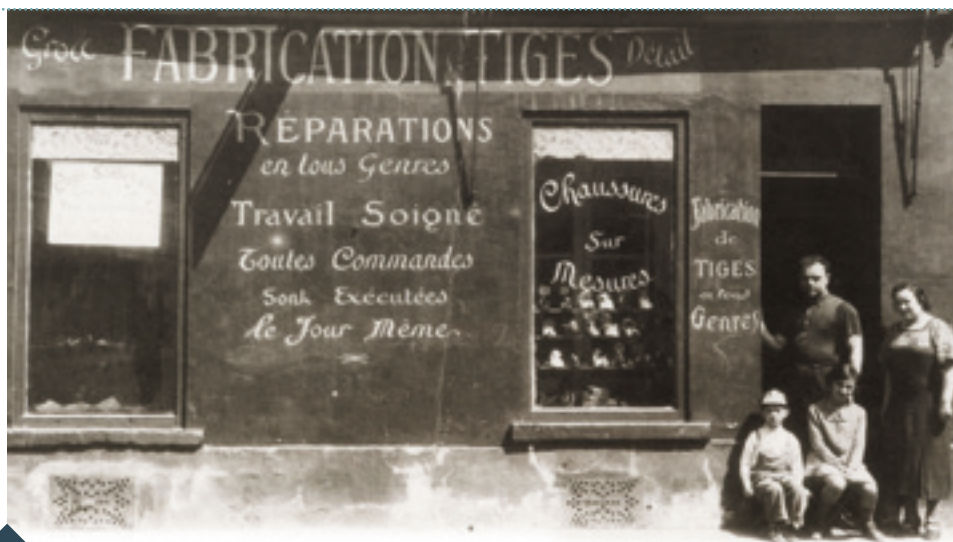 Gros FABRICATION de TIGES Détail
RÉPARATIONS
en tous Genres
Travail Soigné
Toutes Commandes
Sont Exécutées
le Jour Même
Chaussures
Sur
Mesures
Fabrication
de
TIGES
en tous
Genres